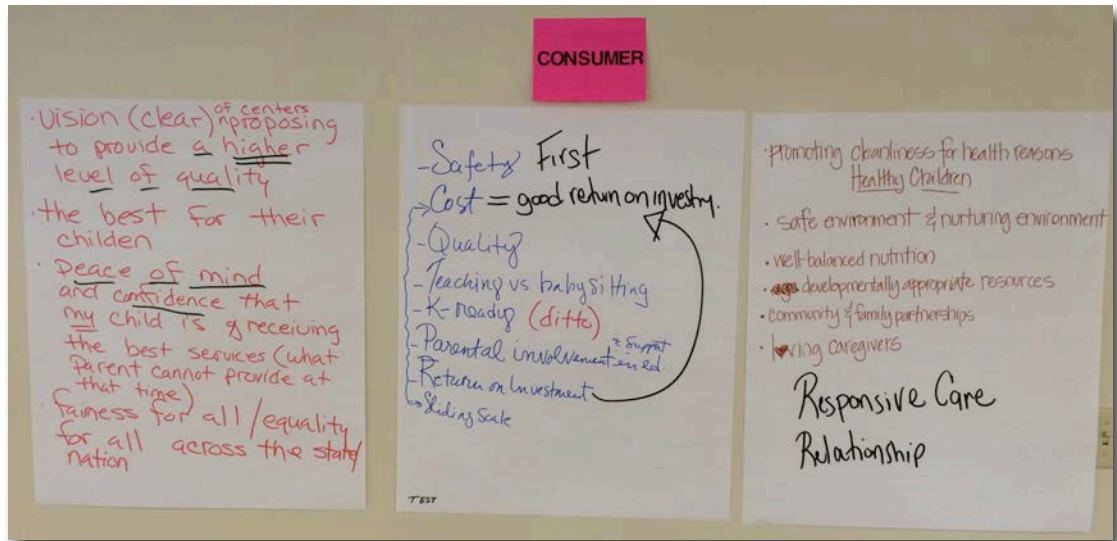 CONSUMER
· Vision (clear) of centers proposing
to provide a higher
level of quality
· the best for their
childen
· Peace of mind
and confidence that
my child is receiving
the best services (what
Parent cannot provide at
that time)
· fairness for all / equality
for all across the state/
nation
- Safety First
- Cost = good return on investm.
- Quality
- Teaching vs babysitting
- K-ready (ditto)
- Parental involvement & support in ed.
- Return on Investment
Sliding Scale
TEST
· promoting cleanliness for health reasons
Healthy Children
· safe environment & nurturing environment
· well-balanced nutrition
· developmentally appropriate resources
· community & family partnerships
· loving caregivers
Responsive Care
Relationship